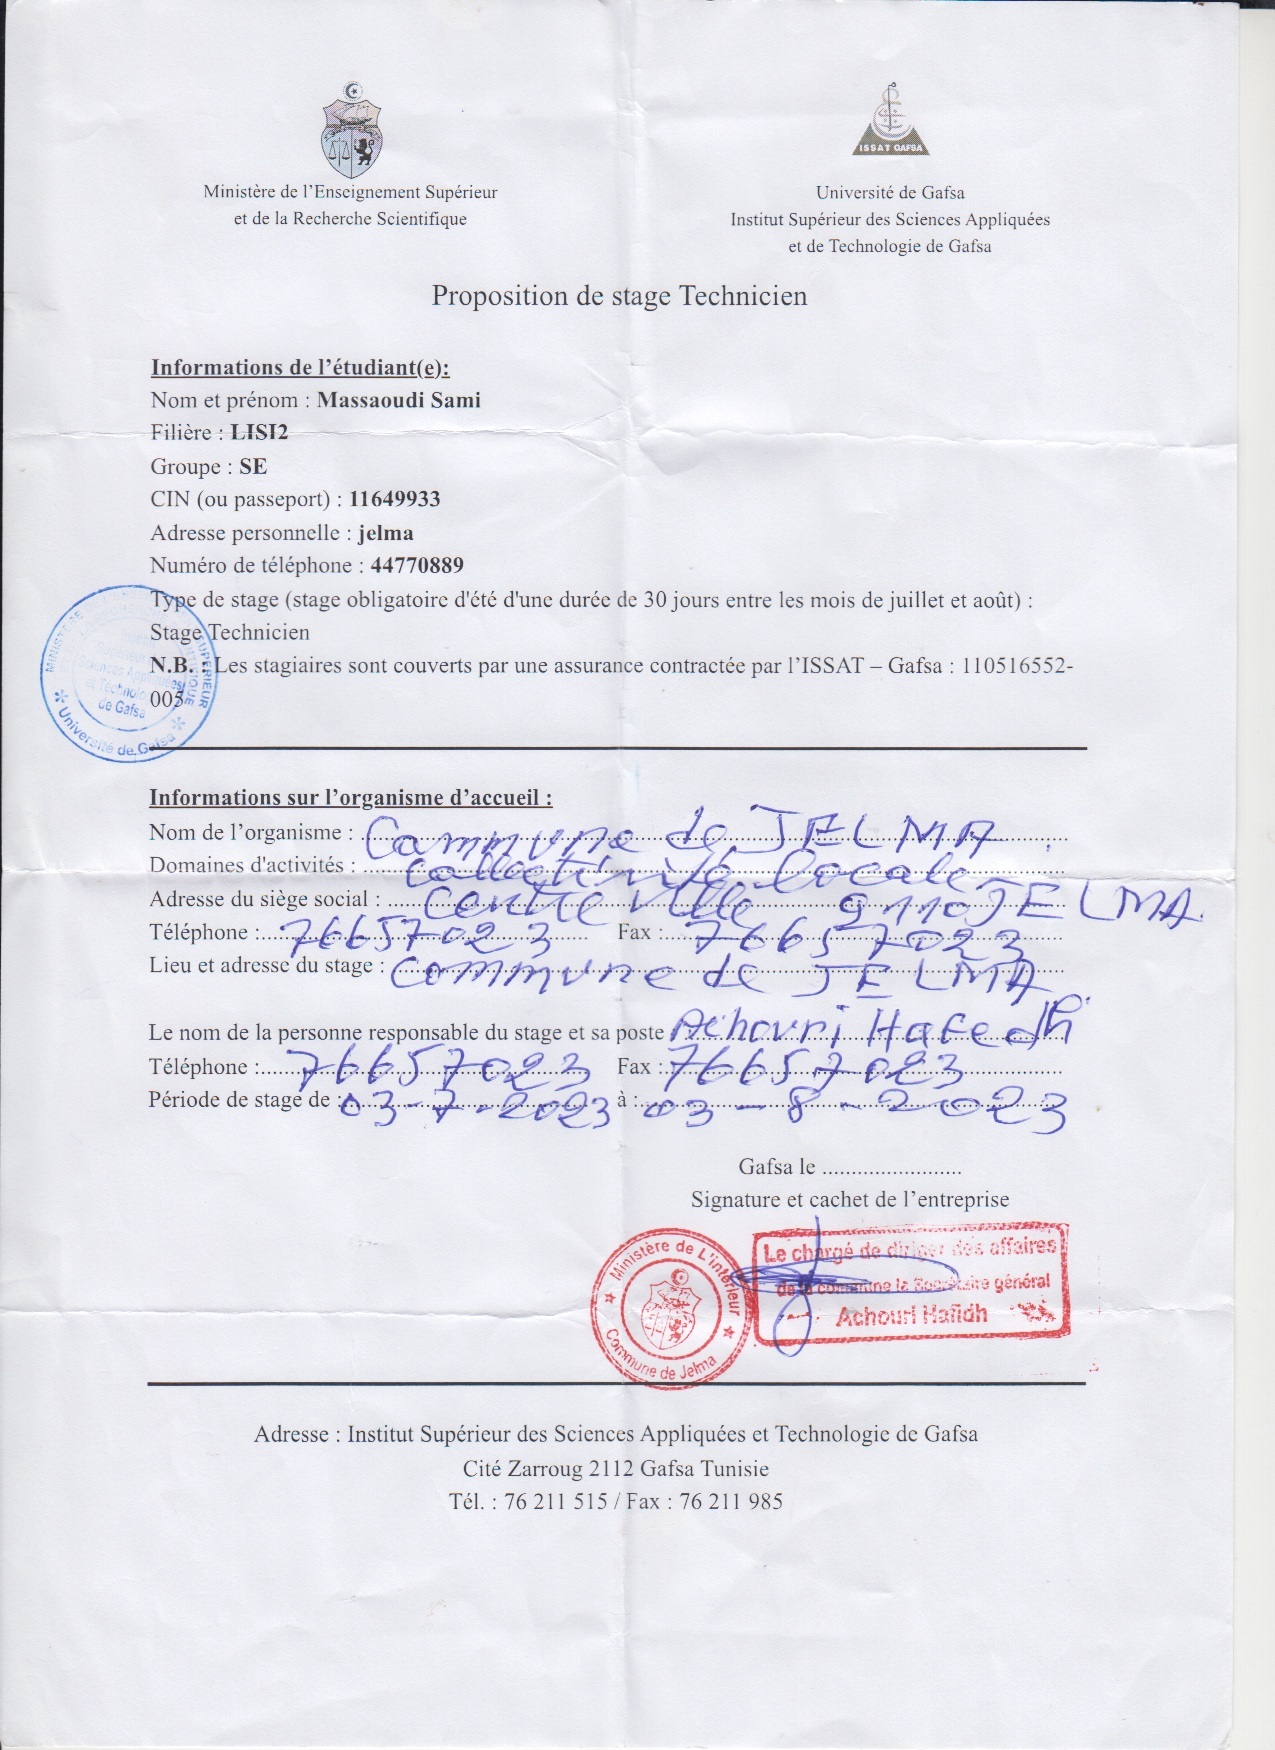 ISSAT GAFSA
Ministère de l'Enseignement Supérieur
et de la Recherche Scientifique
Université de Gafsa
Institut Supérieur des Sciences Appliquées
et de Technologie de Gafsa
Proposition de stage Technicien
Informations de l'étudiant(e):
Nom et prénom : Massaoudi Sami
Filière : LISI2
Groupe : SE
CIN (ou passeport) : 11649933
Adresse personnelle : jelma
Numéro de téléphone : 44770889
Type de stage (stage obligatoire d'été d'une durée de 30 jours entre les mois de juillet et août) :
Stage Technicien
N.B. : Les stagiaires sont couverts par une assurance contractée par l'ISSAT – Gafsa : 110516552-
005
SUPERIEUR
Sciences Appliquées
et Technolo
de Gafsa
Université de Gafsa
Informations sur l'organisme d'accueil :
Nom de l'organisme : Commune de JELMA
Domaines d'activités : Collectivité locale
Adresse du siège social : Centre Ville 9110 JELMA
Téléphone : 76657023 Fax : 76657023
Lieu et adresse du stage : Commune de JELMA
Le nom de la personne responsable du stage et sa poste : Achouri Hafedh
Téléphone : 76657023 Fax : 76657023
Période de stage de : 03-7-2023 à : 03-8-2023
Gafsa le ........................
Signature et cachet de l'entreprise
Ministère de L'intérieur
Commune de Jelma
Le chargé de diriger des affaires
de la commune le Secrétaire général
Achouri Hafidh
Adresse : Institut Supérieur des Sciences Appliquées et Technologie de Gafsa
Cité Zarroug 2112 Gafsa Tunisie
Tél. : 76 211 515 / Fax : 76 211 985